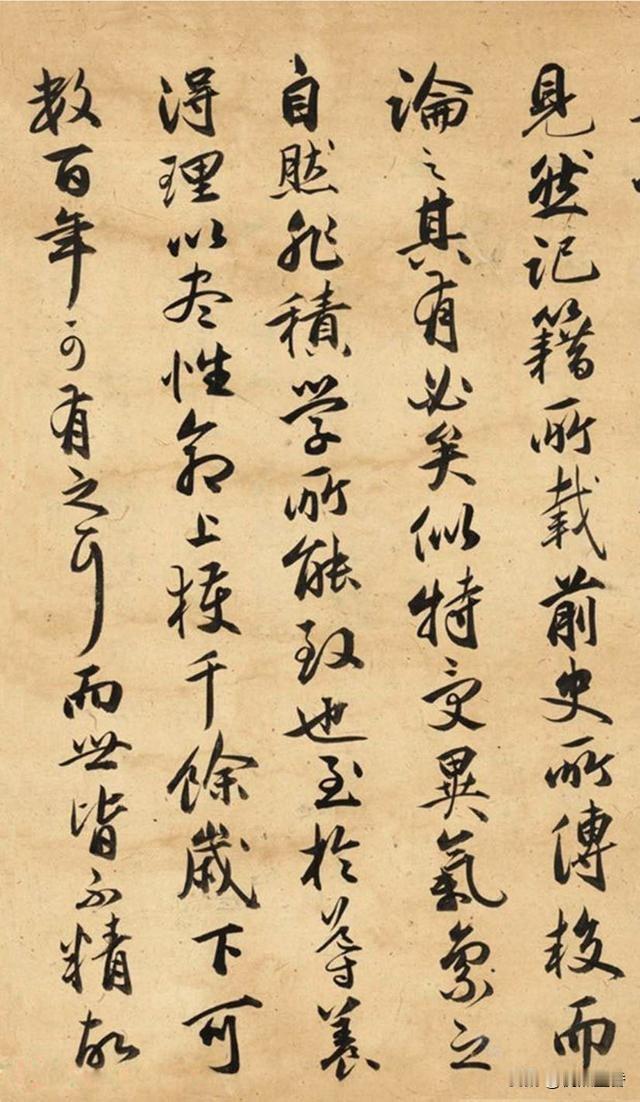 見然記籍所載前史所傳校而
論之其有必矣似特受異氣稟之
自然非積学所能致也至於導養
得理以尽性命上獲千餘歲下可
數百年可有之耳而世皆不精故